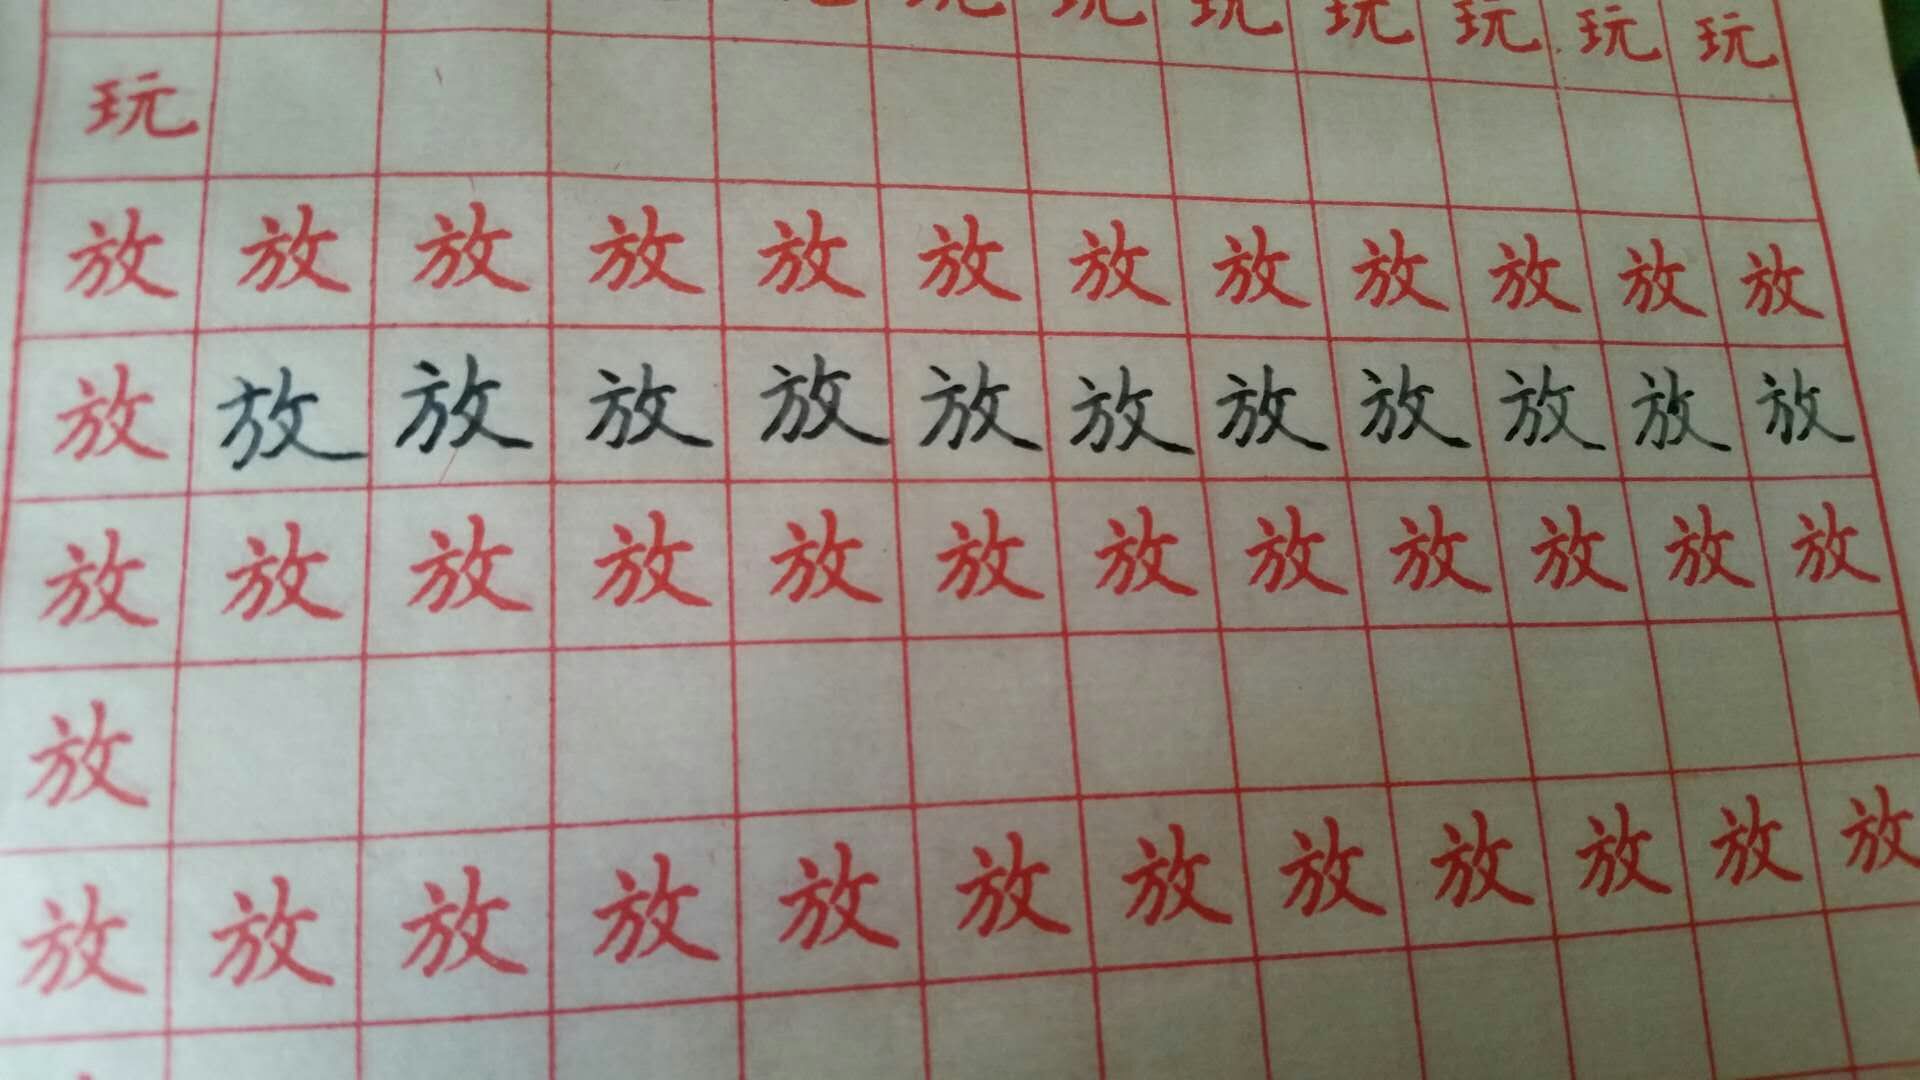 玩 玩 玩 玩 玩 玩 玩
玩
放 放 放 放 放 放 放 放 放 放 放 放
放 放 放 放 放 放 放 放 放 放 放 放
放 放 放 放 放 放 放 放 放 放 放 放
放
放 放 放 放 放 放 放 放 放 放 放 放